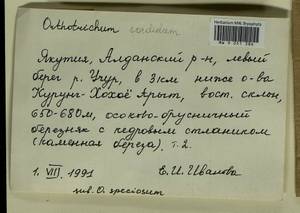 Orthotrichum sordidum
Herbarium MHA, Bryophyta
Якутия, Алданский р-н, левый
берег р. Учур, в 3 км ниже о-ва
Курунг-Хохоё Арыт, вост. склон,
650-680м, осоково-брусничный
березняк с кедровым стлаником
(каменная береза). т. 2.
1. VII. 1991
Е. И. Иванова
sub. O. speciosum